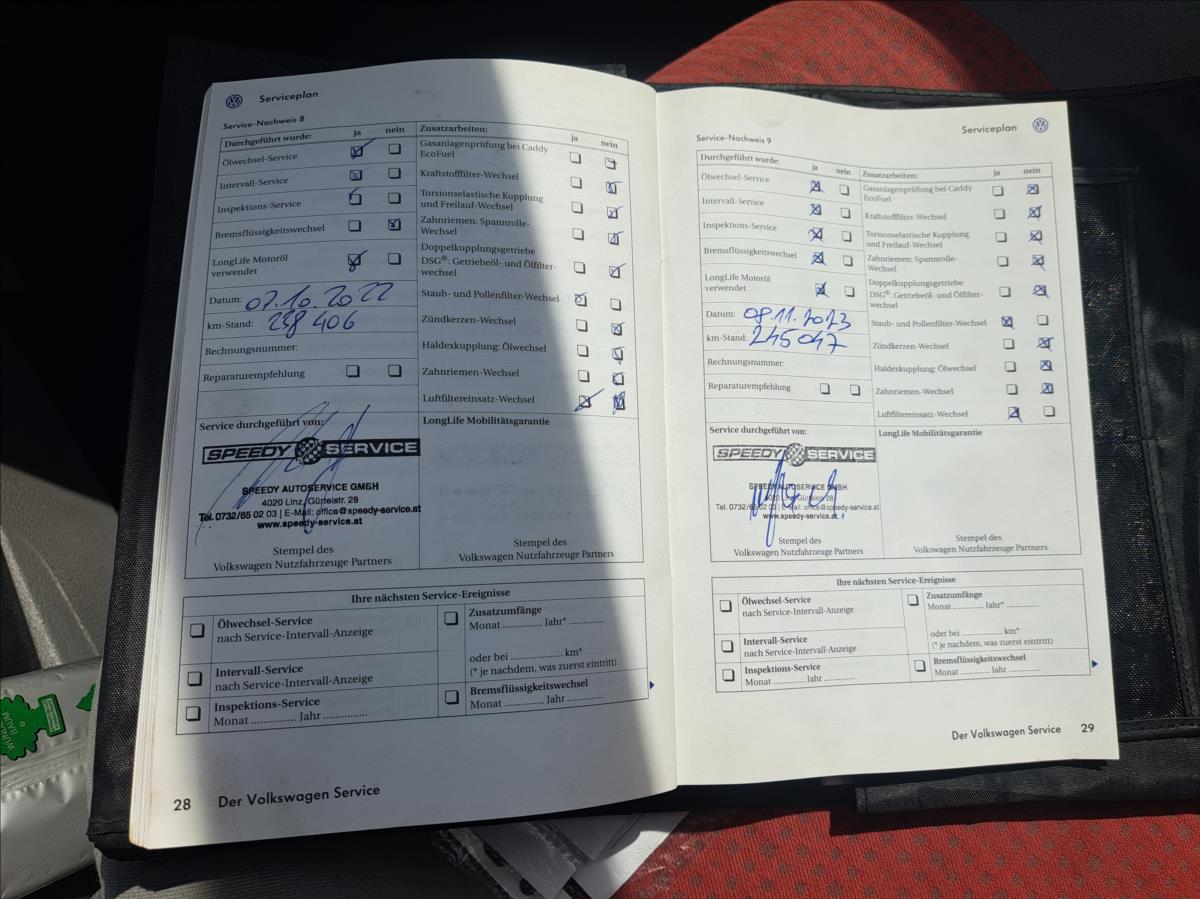 Serviceplan
Service-Nachweis 8
Durchgeführt wurde: ja nein
Ölwechsel-Service
Intervall-Service
Inspektions-Service
Bremsflüssigkeitswechsel
LongLife Motoröl
verwendet
Datum: 07.10.2022
km-Stand: 238 406
Rechnungsnummer:
Reparaturempfehlung
Zusatzarbeiten: ja nein
Gasanlagenprüfung bei Caddy
EcoFuel
Kraftstofffilter-Wechsel
Torsionselastische Kupplung
und Freilauf-Wechsel
Zahnriemen: Spannrolle-
Wechsel
Doppelkupplungsgetriebe
DSG®: Getriebeöl- und Ölfilter-
wechsel
Staub- und Pollenfilter-Wechsel
Zündkerzen-Wechsel
Haldexkupplung: Ölwechsel
Zahnriemen-Wechsel
Luftfiltereinsatz-Wechsel
Service durchgeführt von:
SPEEDY SERVICE
SPEEDY AUTOSERVICE GMBH
4020 Linz, Gürtelstr. 28
Tel. 0732/65 02 03 | E-Mail: office@speedy-service.at
www.speedy-service.at
Stempel des
Volkswagen Nutzfahrzeuge Partners
LongLife Mobilitätsgarantie
Stempel des
Volkswagen Nutzfahrzeuge Partners
Ihre nächsten Service-Ereignisse
Ölwechsel-Service
nach Service-Intervall-Anzeige
Intervall-Service
nach Service-Intervall-Anzeige
Inspektions-Service
Monat .............. Jahr ..............
Zusatzumfänge
Monat .............. Jahr* ..............
oder bei .............. km*
(* je nachdem, was zuerst eintritt)
Bremsflüssigkeitswechsel
Monat .............. Jahr ..............
28 Der Volkswagen Service
Serviceplan
Service-Nachweis 9
Durchgeführt wurde: ja nein
Ölwechsel-Service
Intervall-Service
Inspektions-Service
Bremsflüssigkeitswechsel
LongLife Motoröl
verwendet
Datum: 08.11.2023
km-Stand: 245047
Rechnungsnummer:
Reparaturempfehlung
Zusatzarbeiten: ja nein
Gasanlagenprüfung bei Caddy
EcoFuel
Kraftstofffilter-Wechsel
Torsionselastische Kupplung
und Freilauf-Wechsel
Zahnriemen: Spannrolle-
Wechsel
Doppelkupplungsgetriebe
DSG®: Getriebeöl- und Ölfilter-
wechsel
Staub- und Pollenfilter-Wechsel
Zündkerzen-Wechsel
Haldexkupplung: Ölwechsel
Zahnriemen-Wechsel
Luftfiltereinsatz-Wechsel
Service durchgeführt von:
SPEEDY SERVICE
SPEEDY AUTOSERVICE GMBH
4020 Linz, Gürtelstr. 28
Tel. 0732/65 02 03 | E-Mail: office@speedy-service.at
www.speedy-service.at
Stempel des
Volkswagen Nutzfahrzeuge Partners
LongLife Mobilitätsgarantie
Stempel des
Volkswagen Nutzfahrzeuge Partners
Ihre nächsten Service-Ereignisse
Ölwechsel-Service
nach Service-Intervall-Anzeige
Intervall-Service
nach Service-Intervall-Anzeige
Inspektions-Service
Monat .............. Jahr ..............
Zusatzumfänge
Monat .............. Jahr* ..............
oder bei .............. km*
(* je nachdem, was zuerst eintritt)
Bremsflüssigkeitswechsel
Monat .............. Jahr ..............
Der Volkswagen Service 29
WUNDER
BAUM